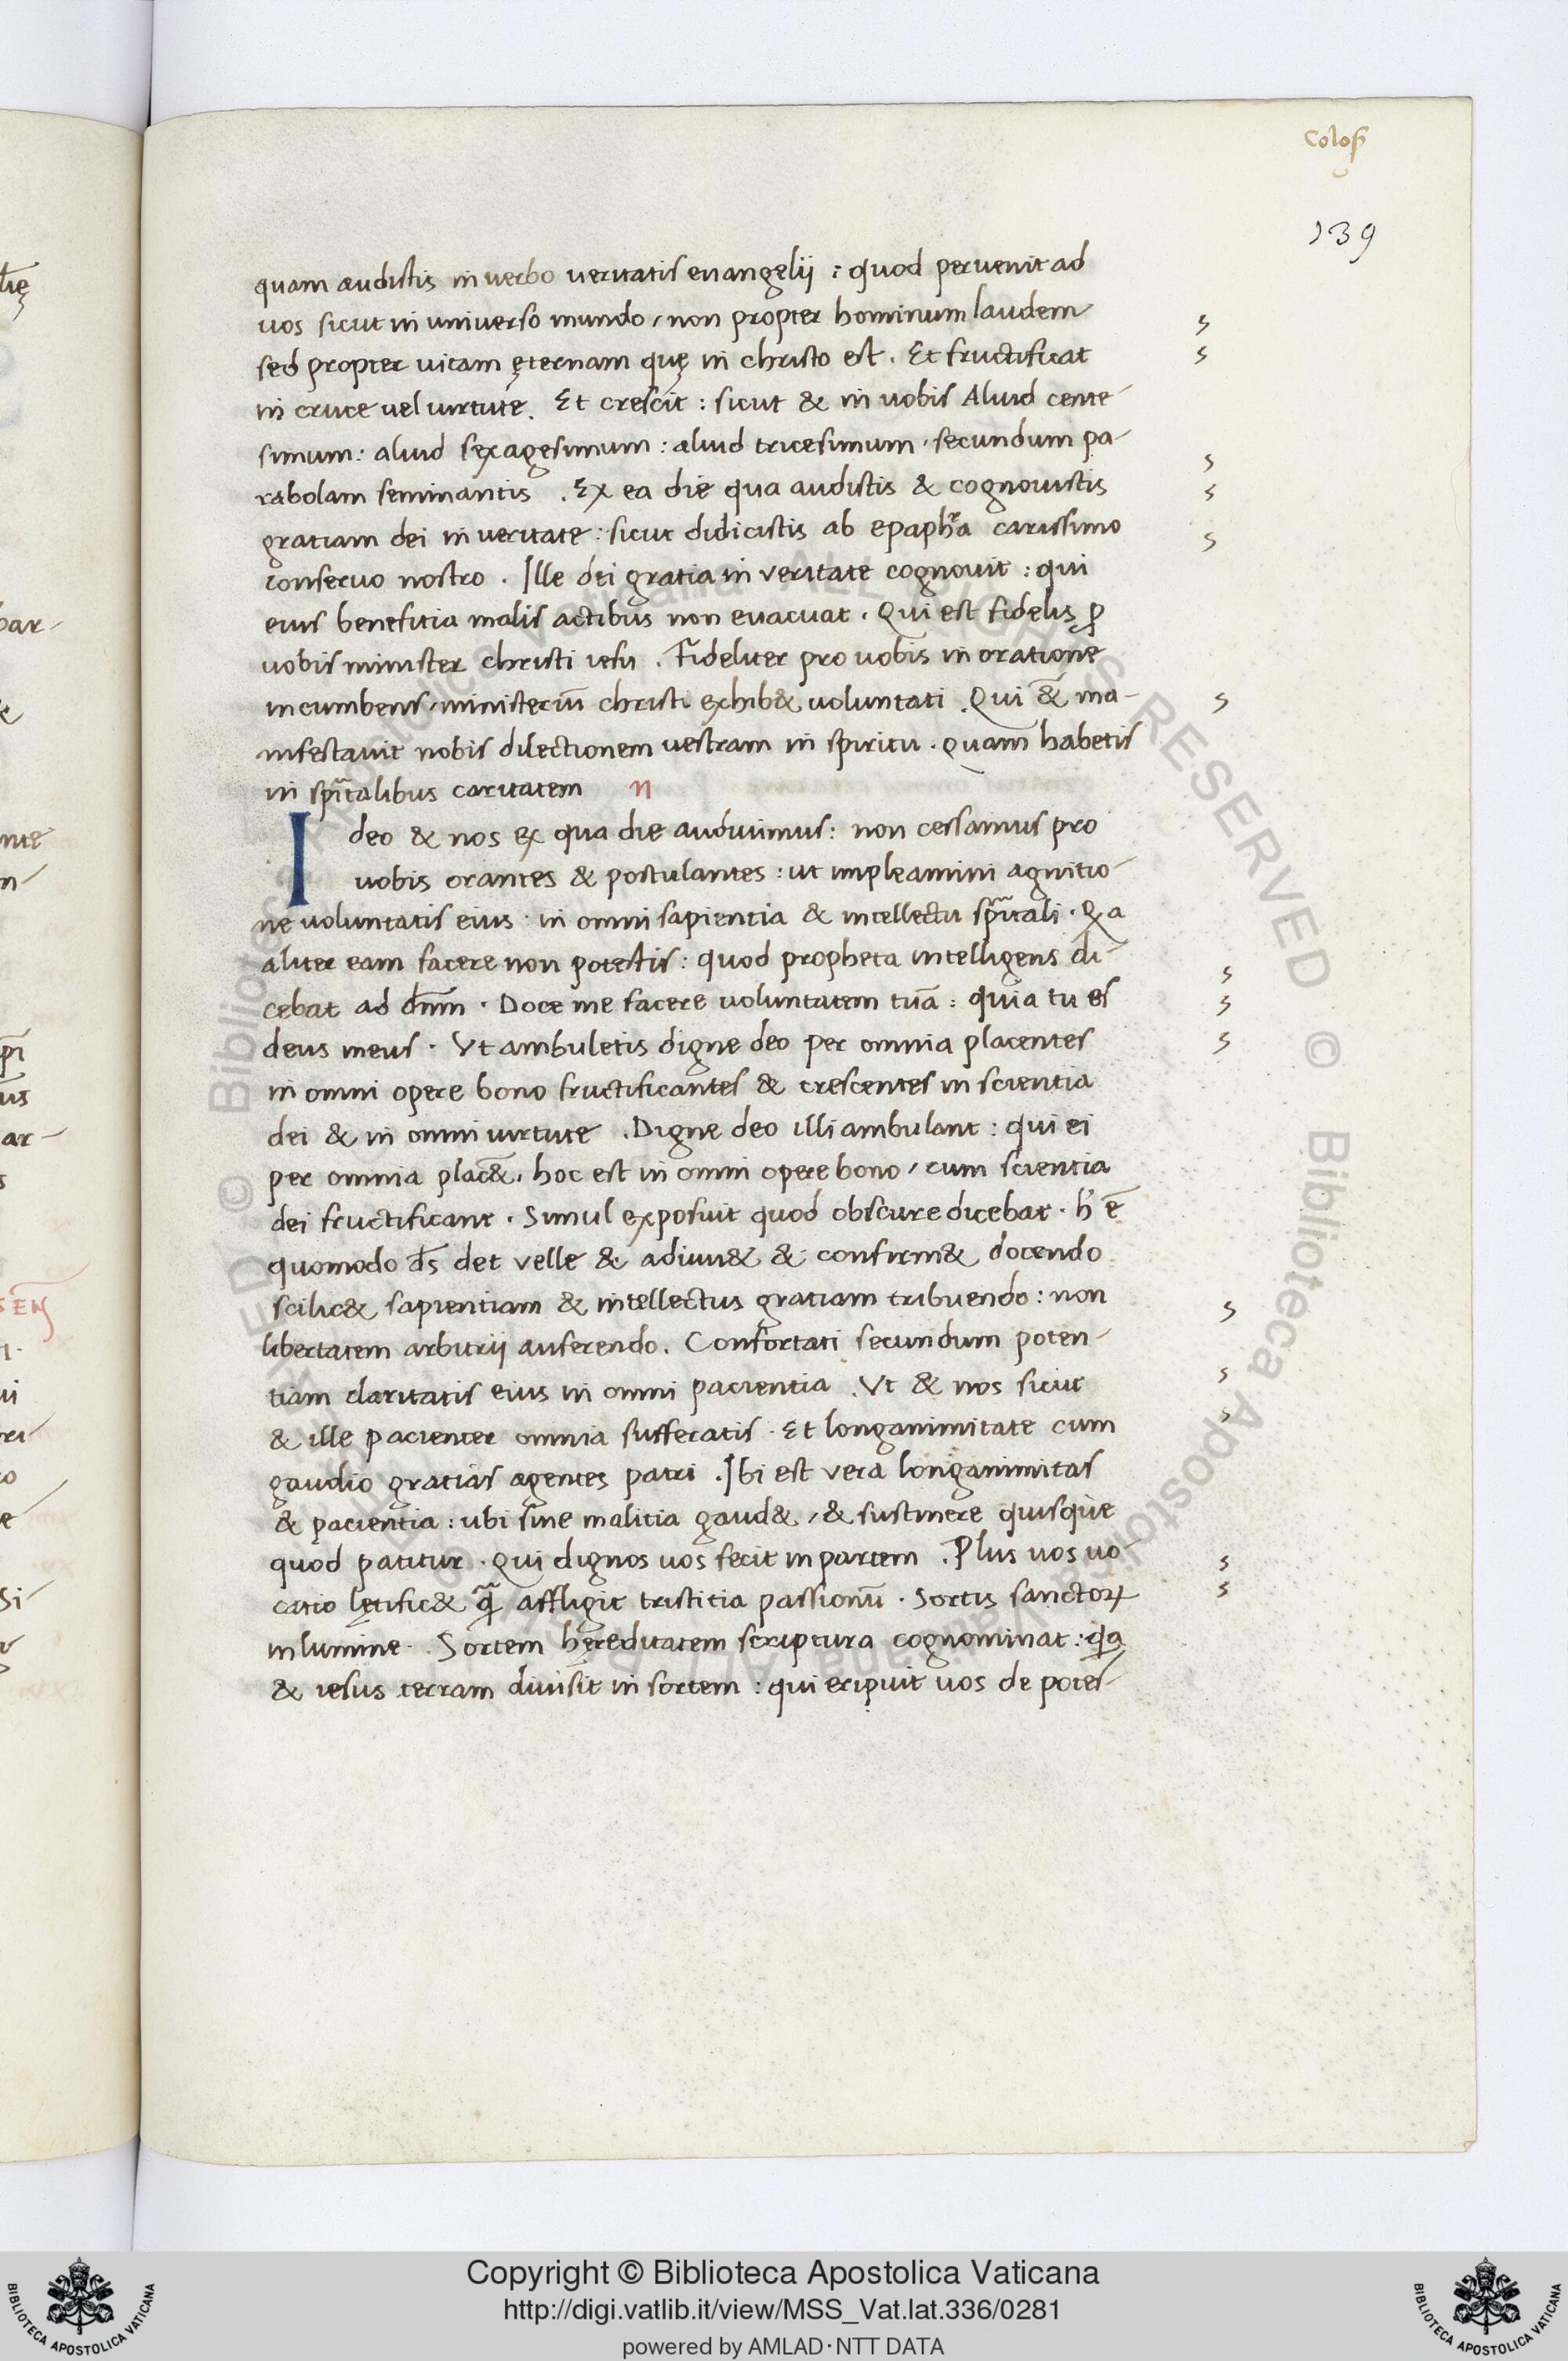 Colos̄
139
quam audistis in verbo veritatis euangelij : quod pervenit ad
vos sicut in universo mundo, non propter hominum laudem
sed propter uitam ęternam quę in christo est. Et fructificat
in cruce vel virtute. Et crescit : sicut & in vobis Aliud cente-
simum : aliud sexagesimum : aliud tricesimum, secundum pa-
rabolam seminantis . Ex ea die qua audistis & cognovistis
gratiam dei in veritate : sicut didicistis ab epaphra carissimo
conservo nostro . Ille dei gratia in veritate cognovit : qui
eius benefitia malis actibus non evacuat . Qui est fidelis ꝓ
vobis minister christi iesu . Fideliter pro vobis in oratione
incumbens, ministeriū christi exhib& voluntati . Qui & ma-
nifestavit nobis dilectionem vestram in spiritu . Quam habetis
in spūalibus caritatem n
Ideo & nos ex qua die audivimus : non cessamus pro
vobis orantes & postulantes : ut impleamini agnitio-
ne voluntatis eius in omni sapientia & intellectu spūali . Qa
aliter eam facere non potestis : quod propheta intelligens di-
cebat ad dn̄m . Doce me facere voluntatem tuā : quia tu es
deus meus . Vt ambuletis digne deo per omnia placentes
in omni opere bono fructificantes & crescentes in scientia
dei & in omni virtute . Digne deo illi ambulant : qui ei
per omnia plac&, hoc est in omni opere bono, cum scientia
dei fructificant . Simul exposuit quod obscure dicebat . h' ē
quomodo d̄s det velle & adiuu& & confirm& docendo
scilic& sapientiam & intellectus gratiam tribuendo : non
libertatem arbitrij auferendo. Confortati secundum poten-
tiam claritatis eius in omni pacientia . Vt & nos sicut
& ille pacienter omnia sufferatis . Et longanimitate cum
gaudio gratias agentes patri . Ibi est vera longanimitas
& pacientia : ubi sine malitia gaud&, & sustinere quisque
quod patitur . Qui dignos vos fecit in partem . Plus vos vo-
catio lętific& q̄ affligit tristitia passionū . Sortis sanctoꝝ
in lumine . Sortem hęreditatem scriptura cognominat : qa
& iesus terram divisit in sortem : qui eripuit vos de potes-
Copyright © Biblioteca Apostolica Vaticana
http://digi.vatlib.it/view/MSS_Vat.lat.336/0281
powered by AMLAD·NTT DATA